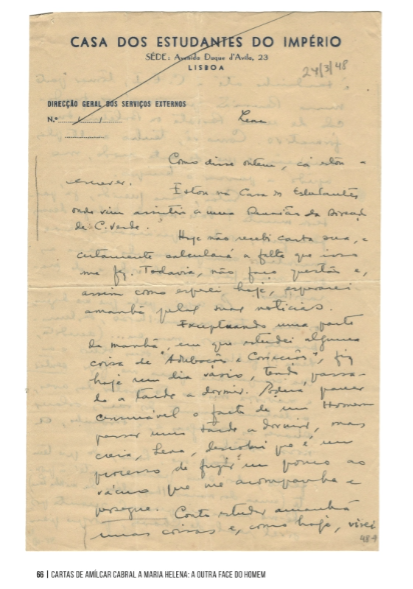 CASA DOS ESTUDANTES DO IMPÉRIO
SÉDE: Avenida Duque d'Avila, 23
LISBOA
24/3/48
DIRECÇÃO GERAL DOS SERVIÇOS EXTERNOS
N.º / /
Lena
Como disse ontem, cá estou a
escrever.
Estou na Casa de Estudantes
onde vim assistir a uma Reunião da Secção
de C. Verde.
Hoje não recebi carta sua, e
certamente calculará a falta que isso
me fez. Todavia, não faço questão e,
assim como esperei hoje, esperarei
amanhã pelas suas notícias.
Exceptuando uma parte
da manhã, em que estudei alguma
coisa de "Adubações e Correcções", fiz
hoje um dia vazio, tendo passa-
do a tarde a dormir. Poderá parecer
condenável o facto de um Homem
passar uma tarde a dormir, mas
creia, Lena, descobri que é um
processo de fugir um pouco ao
vácuo que me acompanha e
persegue. Conto estudar amanhã
umas coisas e, como hoje, viver
66 | CARTAS DE AMÍLCAR CABRAL A MARIA HELENA: A OUTRA FACE DO HOMEM